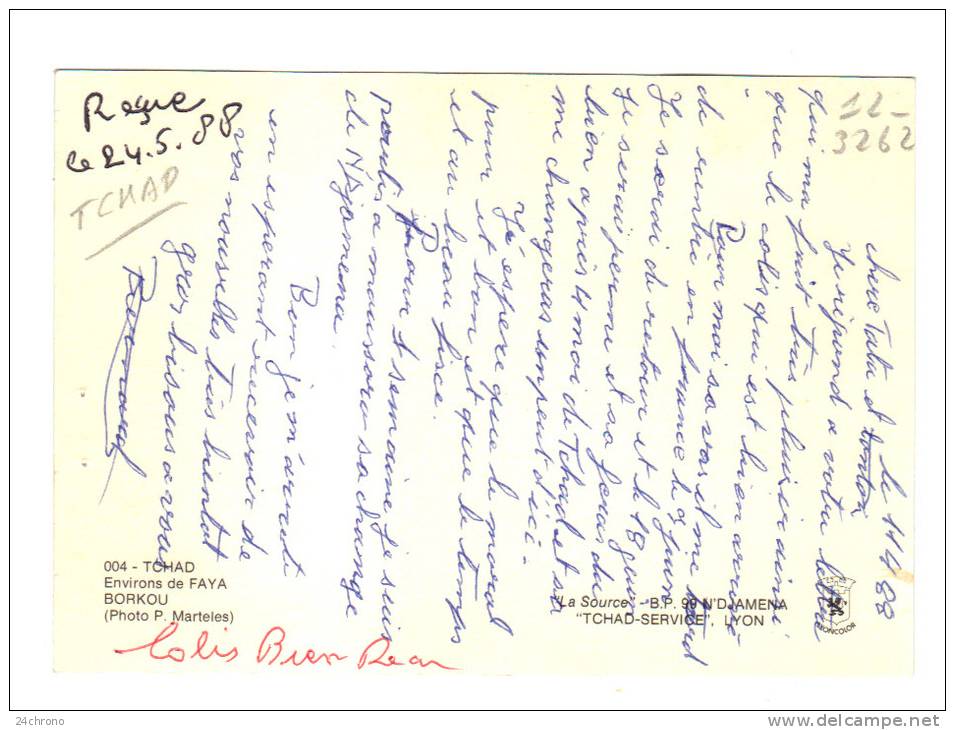 Reçue
le 24.5.88
TCHAD
12-
3262
le 11 4 88
chere Tata et tonton
Je répond a votre lettre
qui ma fait très plaisir ainsi
que le colis qui est bien arrivé
Pour moi sa vas il me tard
de rentré en france le 9 juin
Je serai de retour et le 18 juin
Je serai perme et sa feras du
bien apprès 4 moi de Tchad et sa
me changeras un peut d'ici -
J'éspère que le moral
pour et bon et que le temps
et au beau fisce.
Pour 1 semaine je suis
partis a moussoro sa change
de N'djamena.
Bon je m'arrete
en esperant recevoir de
vos nouvelles très bientot
gros bisous a vous
Bernard
004 - TCHAD
Environs de FAYA
BORKOU
(Photo P. Marteles)
"La Source" - B.P. 99 N'DJAMENA
"TCHAD-SERVICE", LYON
Colis Bien Reçu
24chrono
www.delcampe.net